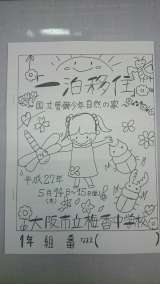 一泊移住
国立曽爾少年自然の家
平成27年
5月14日～15日(金)
(木)
大阪市立梅香中学校
1年 組 番 名前(　　　　)